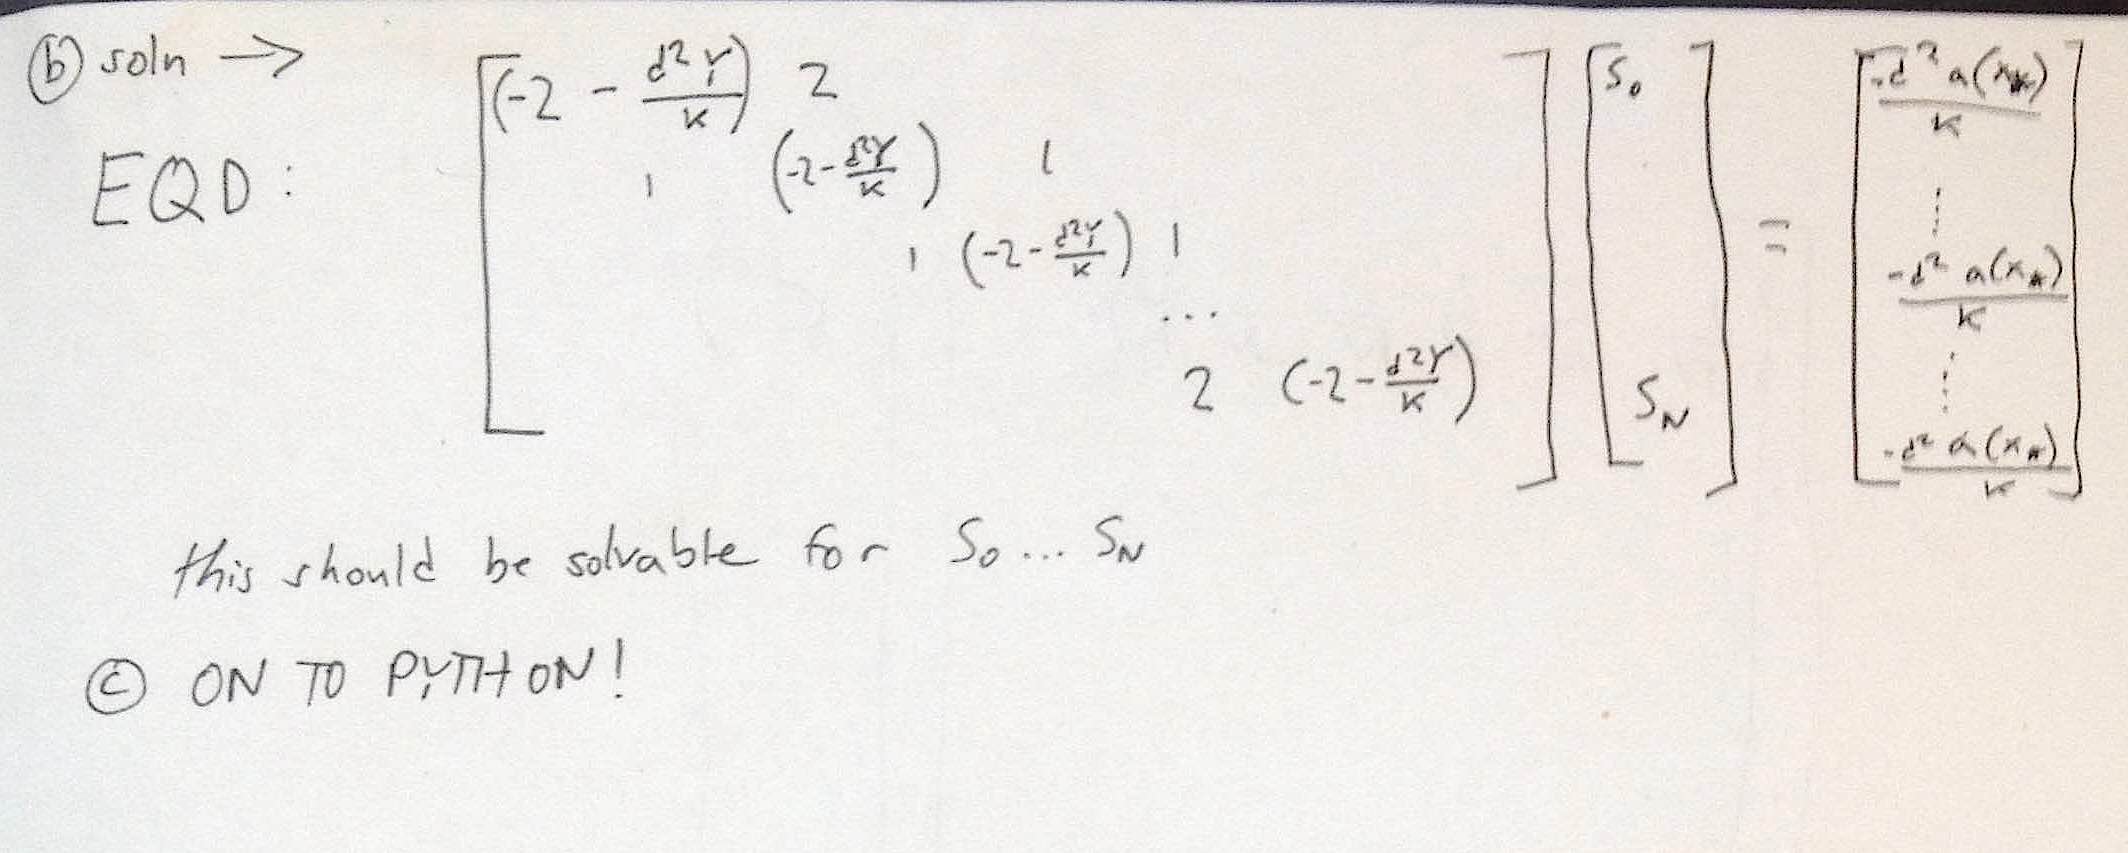 (b) soln →
EQD:
[ (-2 - d²γ/K) 2 ] [ S₀ ] [ -d² a(xₖ)/K ]
1 (-2 - d²γ/K) 1
1 (-2 - d²γ/K) 1 = -d² a(xₖ)/K
...
2 (-2 - d²γ/K) S_N
-d² a(xₖ)/K
this should be solvable for S₀ ... S_N
(c) ON TO PYTHON!